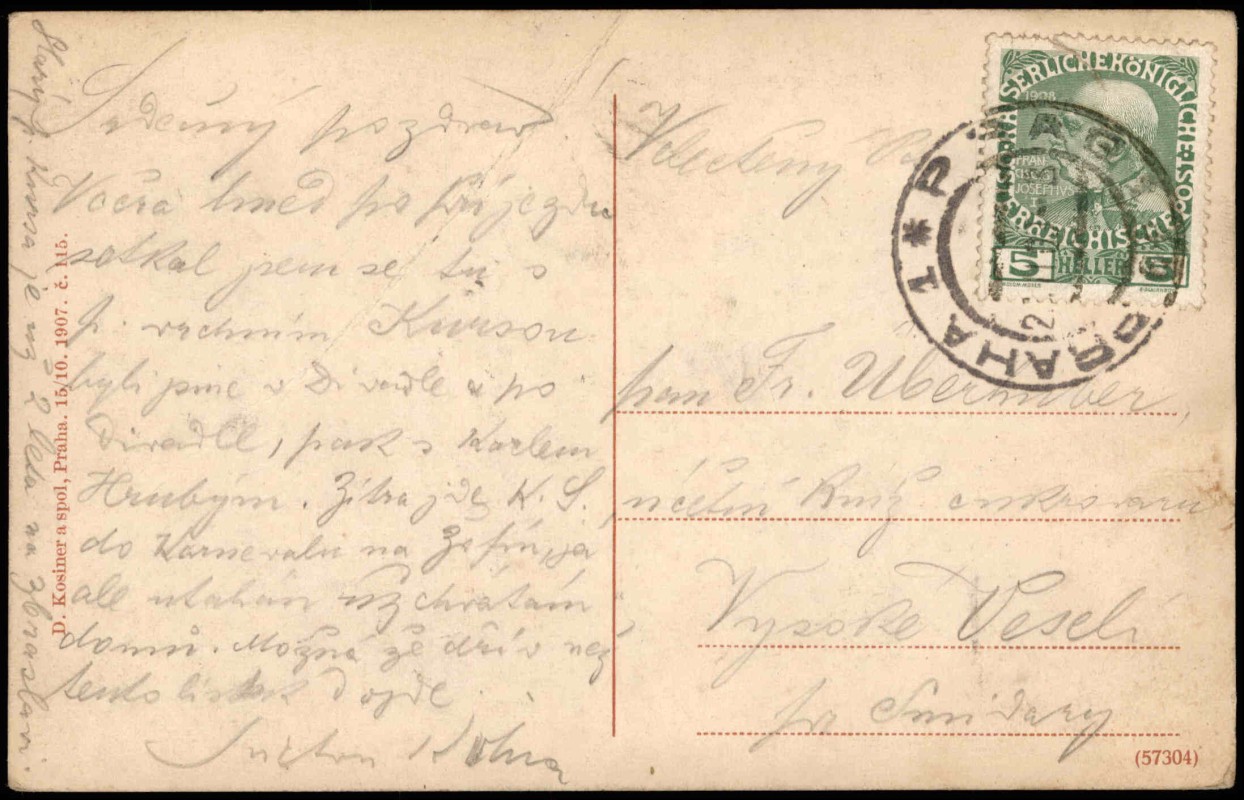 Srdečný pozdrav!
Včera hned po příjezdu
setkal jsem se tu s
p. vrchním
byli jsme v Divadle a po
divadle, pak s Karlem
Hrubým. Zítra jde K. S.
do Karnevalu na Žofín, já
ale utahán už chvátám
domů. Možná že dřív než
tento lístek dojde.
Starý p. je už 2 léta na Zbraslavi.
D. Kosiner a spol, Praha. 15/10. 1907. č. 115.
Velectěný
pan Fr.
účetní cukrovaru
Vysoké Veselí
pr Smidary
(57304)
KAISERLICHE KÖNIGLICHE ÖSTERREICHISCHE
1908
FRAN
CISCUS
JOSEPHUS
I
5 HELLER 5
PRAHA 1 * PRAG 1